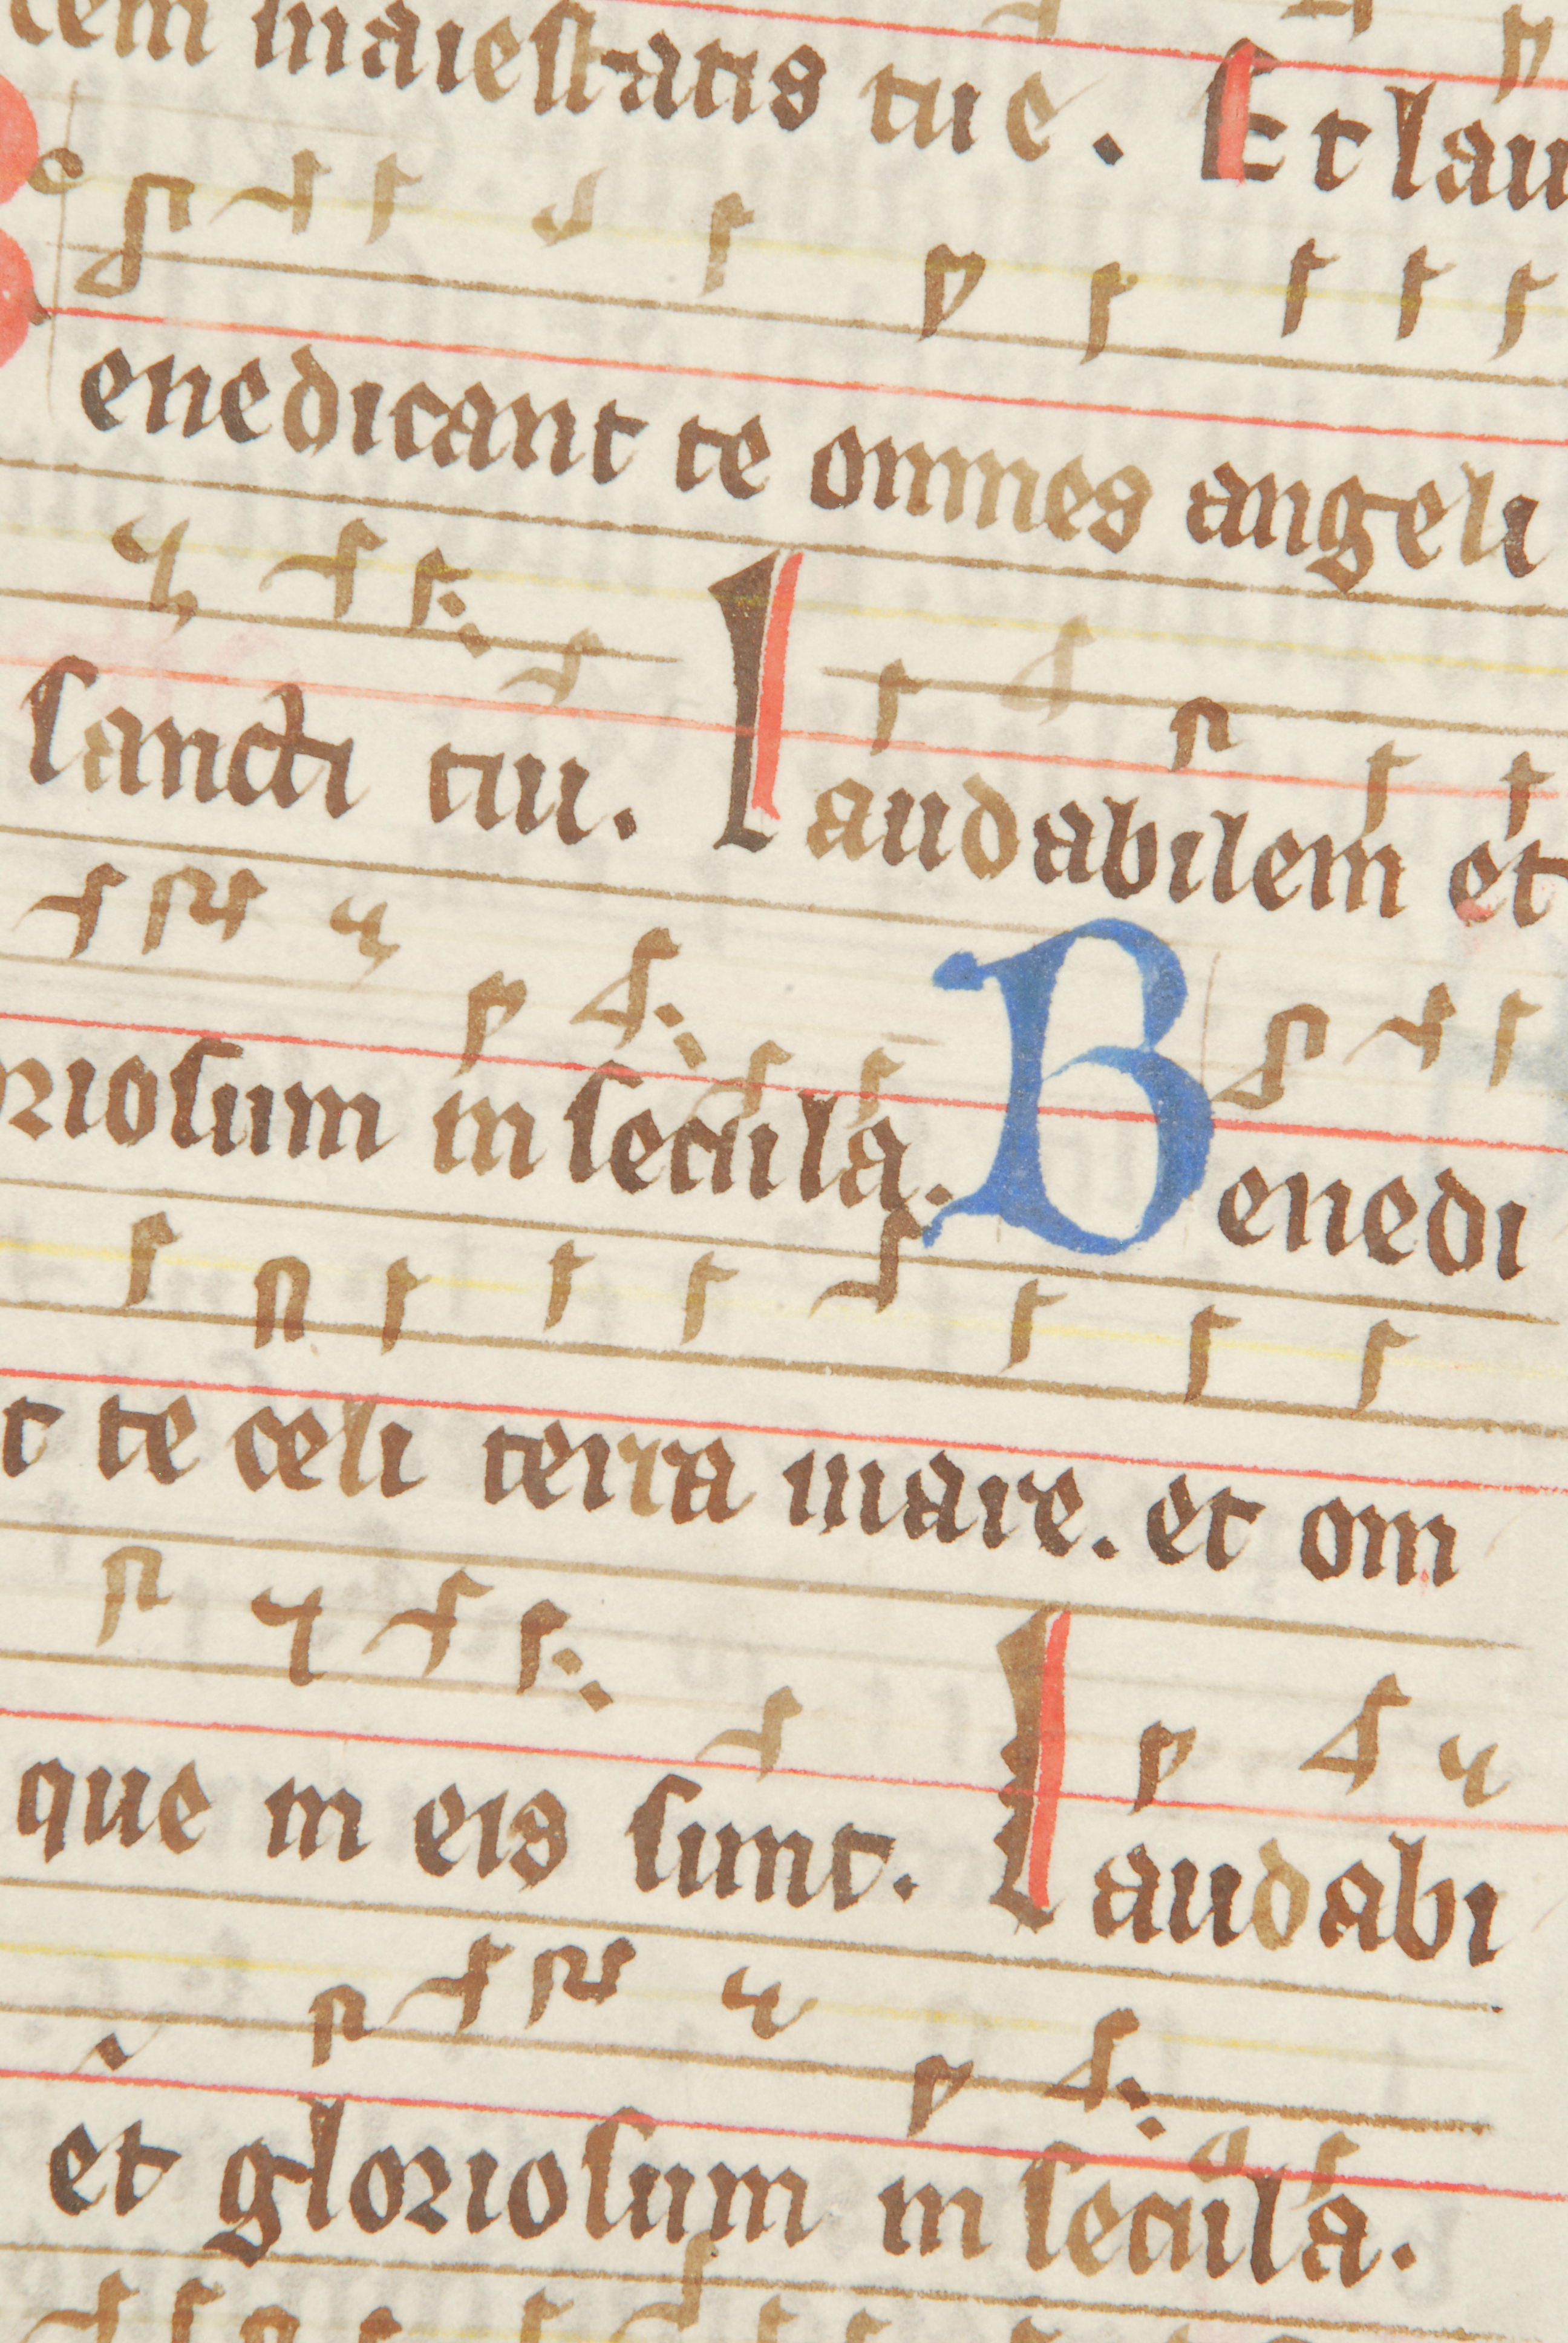 maiestatis tue. Et lau
enedicant te omnes angeli
sancti tui. Laudabilem et
riosum in secula. Benedi
t te celi terra mare. et om
que in eis sunt. Laudabi
et gloriosum in secula.